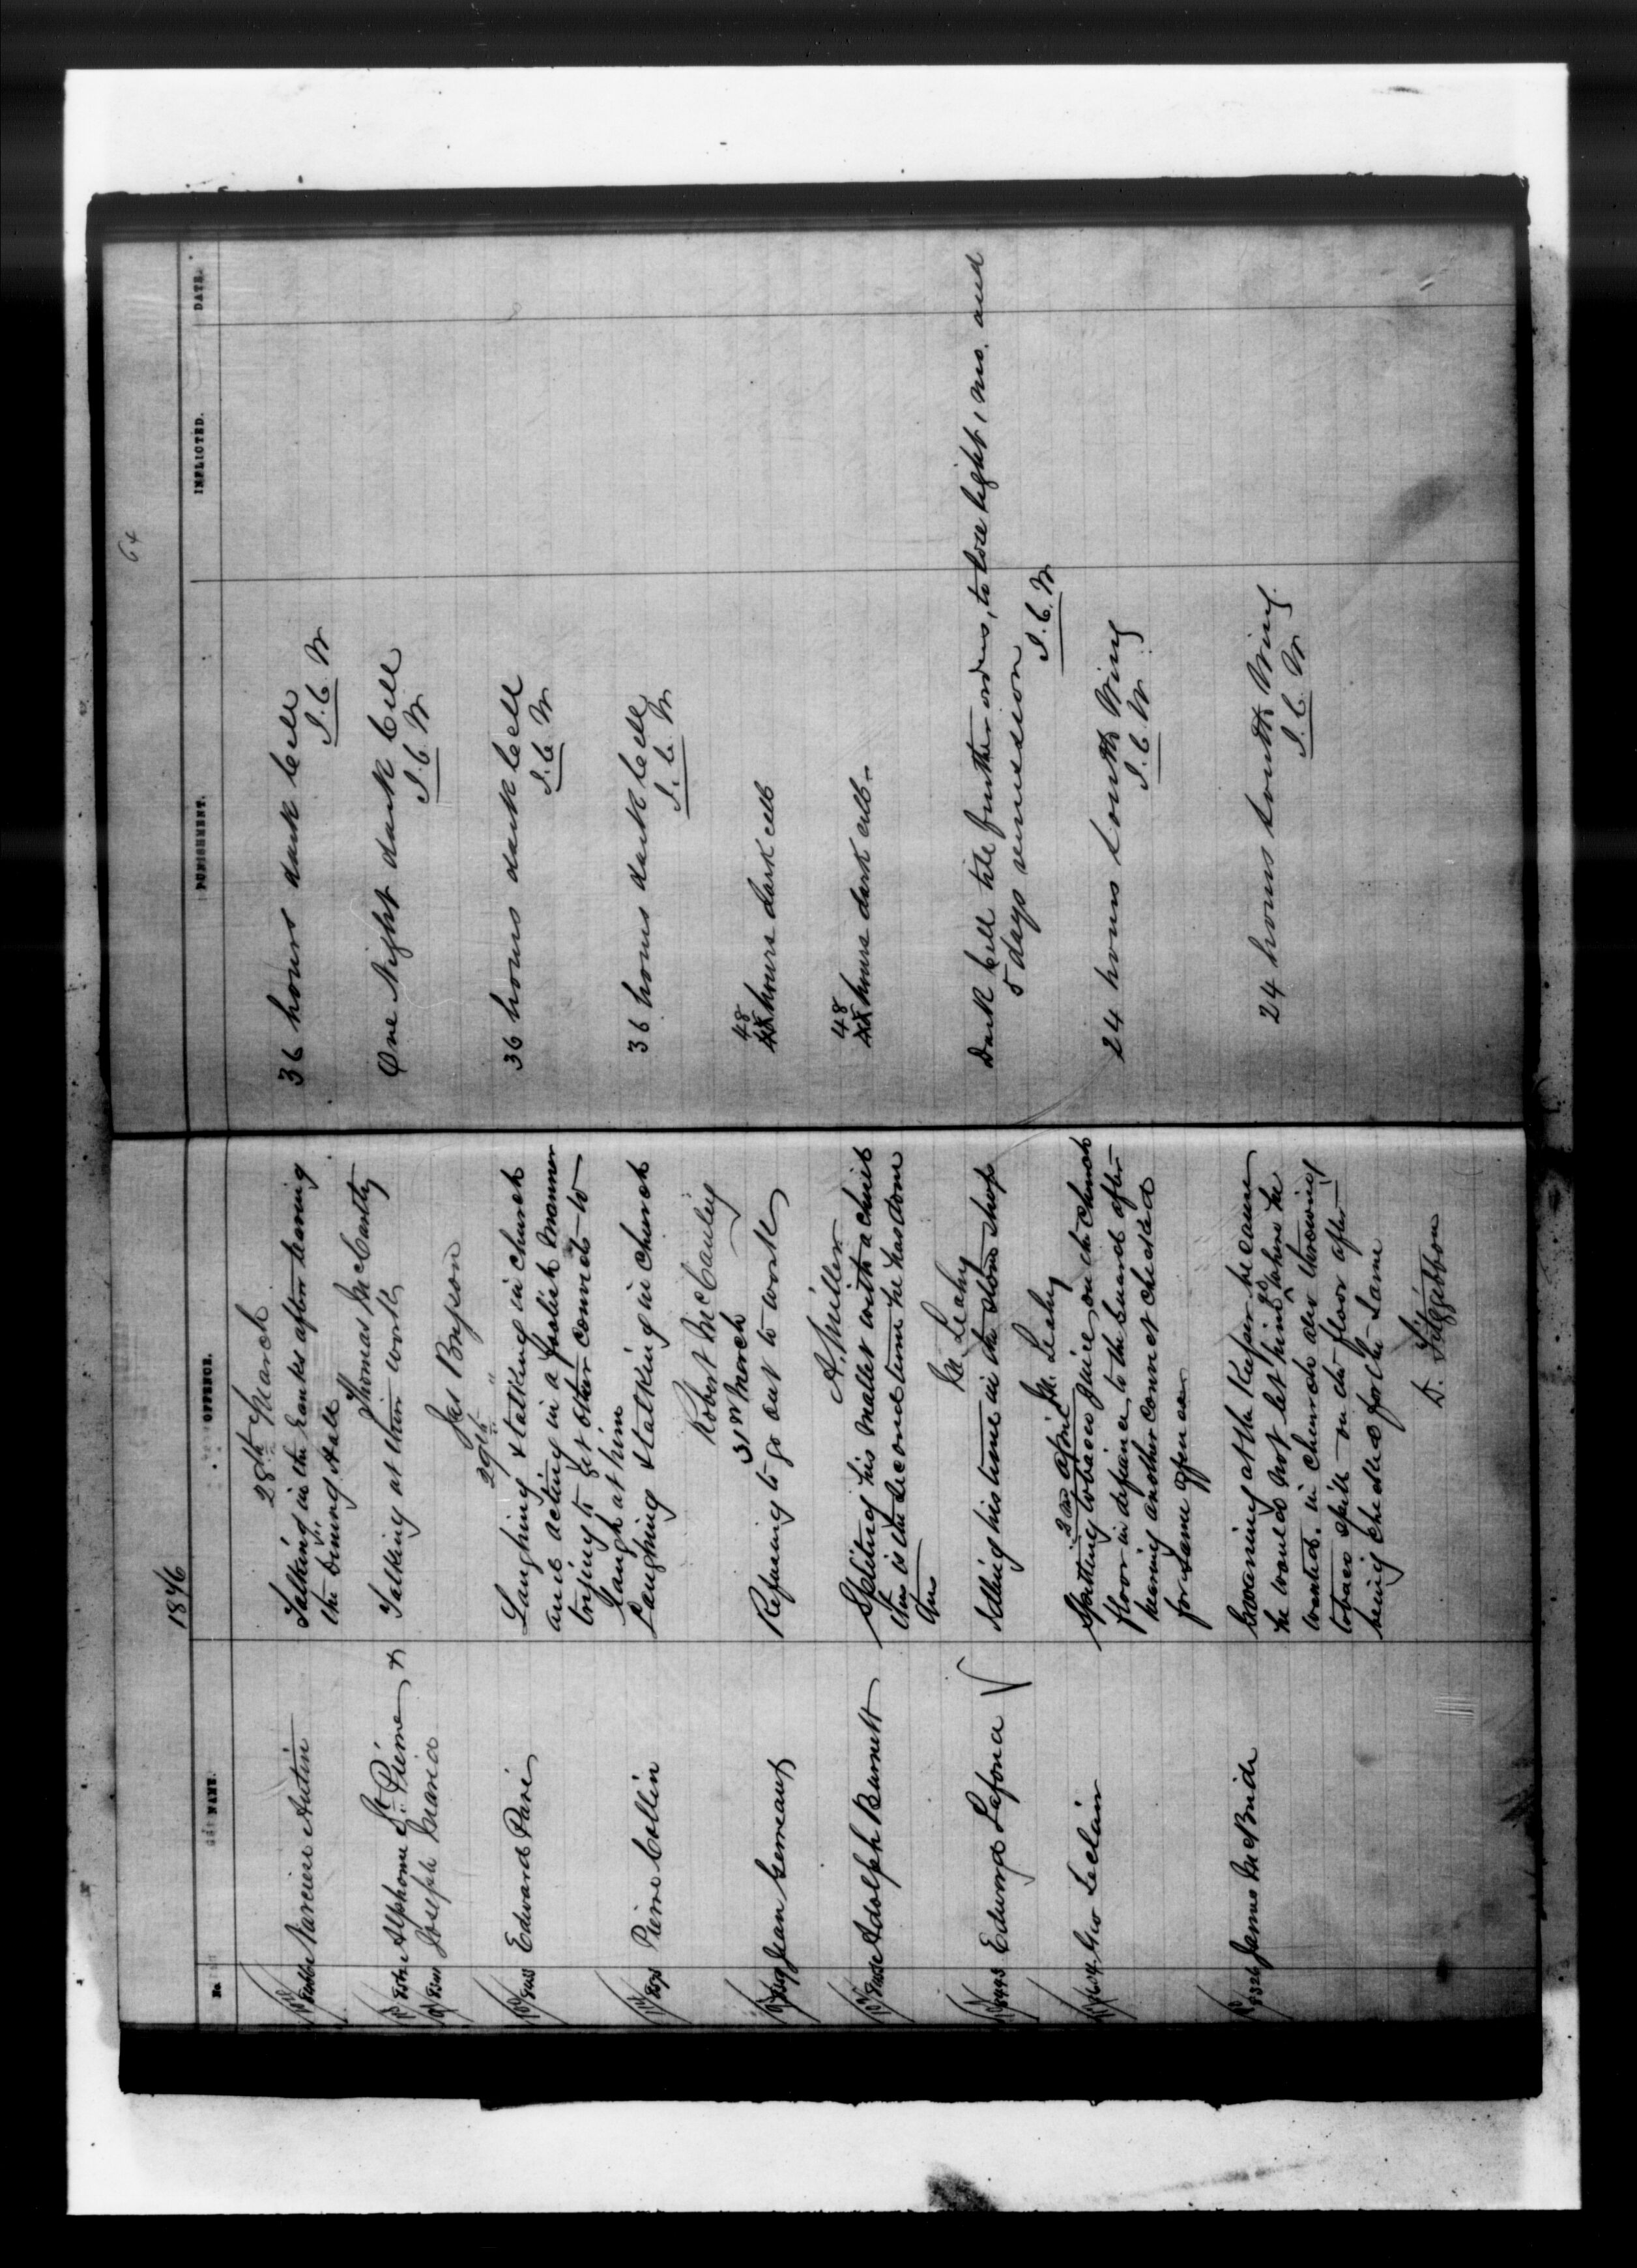 1876
64
No. NAME. OFFENCE. PUNISHMENT. INFLICTED. DATE.
28th March
Narcisse Autin Talking in the Ranks after leaving 36 hours dark Cell
the dining Hall J. C. W
Thomas McCarthy
Alphonse St. Pierre x Talking at their work One Night dark Cell
Joseph J. C. W
Jas Bryson
29th "
Edward Paré Laughing & talking in church 36 hours dark Cell
and acting in a foolish manner J. C. W
trying to get other convicts to
laugh at him
Pierre Collin Laughing & talking in church 36 hours dark Cell
J. C. W
Robert McCauley
31st March
Jean Germeaux Refusing to go out to work 48 hours dark cell
A. Miller
Adolph Burnett Spliting his mallet with a chisel 48 hours dark cell
this is the second time he has done
this
M. Leahy
8443 Edward Lafona √ Idling his time in the stone shop Dark Cell till further orders, to lose light 1 mo. and
5 days remission
M. Leahy J. C. W
2nd April
Geo Leclair Spitting tobacco juice on the church 24 hours South Wing
floor in defiance to the Guard after J. C. W
hearing another convict checked
for same offence
8326 James McBride Groaning at the Keeper because 24 hours South Wing
he would not let him go where he J. C. W
wanted. in church also throwing
tobacco spitt on the floor after
being checked for the same
D. Fitzgibbon